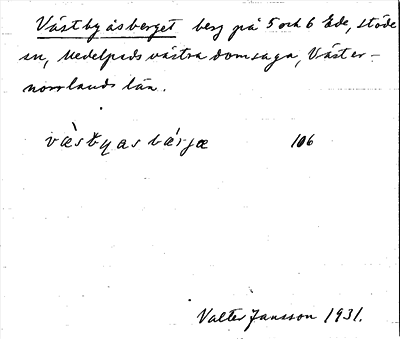 Västbyåsberget berg på 5 och 6 Ede, Stöde
sn, Medelpads västra domsaga, Väster-
norrlands län.
væ̀stbyasbærjæ 106
Valter Jansson 1931.